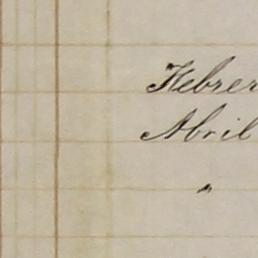 Febrer
Abril
"